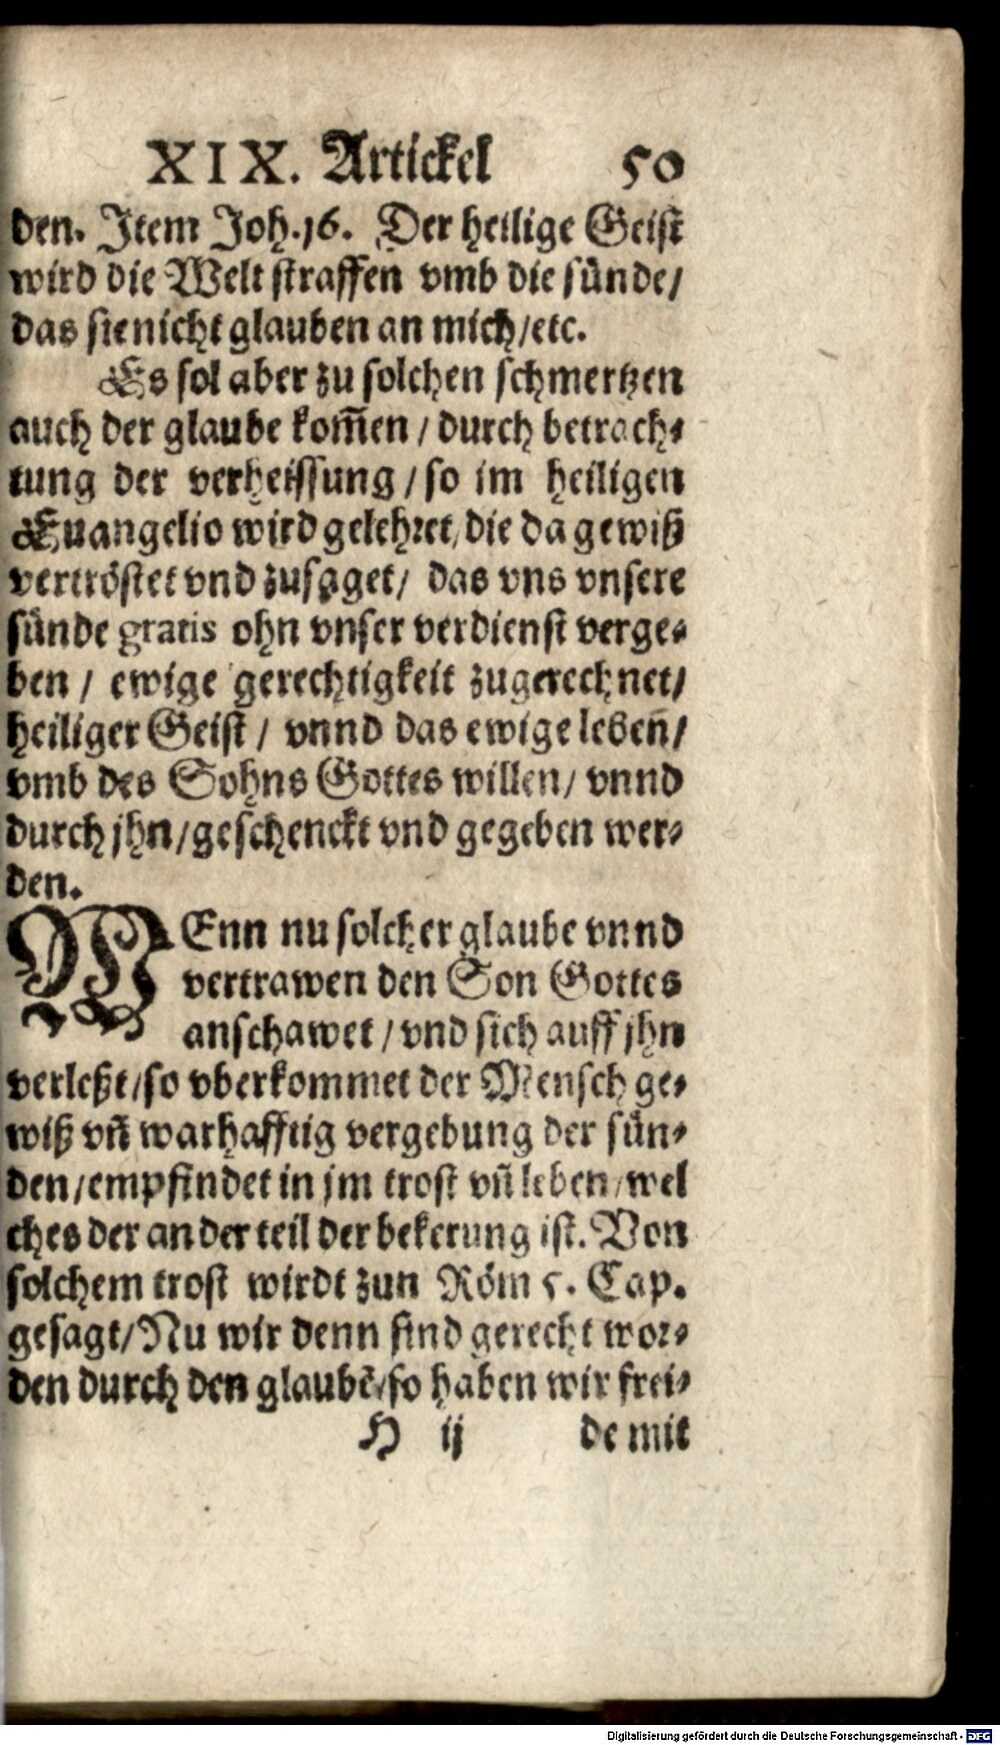 XIX. Artickel 50
den. Item Joh. 16. Der heilige Geist
wird die Welt straffen vmb die sünde/
das sie nicht glauben an mich/etc.
Es sol aber zu solchen schmertzen
auch der glaube kom̃en / durch betrach-
tung der verheissung / so im heiligen
Euangelio wird gelehret, die da gewiß
vertröstet vnd zusaget/ das vns vnsere
sünde gratis ohn vnser verdienst verge-
ben / ewige gerechtigkeit zugerechnet/
heiliger Geist / vnnd das ewige lebeñ/
vmb des Sohns Gottes willen/ vnnd
durch jhn/geschenckt vnd gegeben wer-
den.
WEnn nu solcher glaube vnnd
vertrawen den Son Gottes
anschawet / vnd sich auff jhn
verleßt/so vberkommet der Mensch ge-
wiß vñ warhafftig vergebung der sün-
den/empfindet in jm trost vñ leben/wel
ches der ander teil der bekerung ist. Von
solchem trost wirdt zun Röm 5. Cap.
gesagt/Nu wir denn sind gerecht wor-
den durch den glaubẽ/so haben wir frei-
H ij de mit
Digitalisierung gefördert durch die Deutsche Forschungsgemeinschaft - DFG